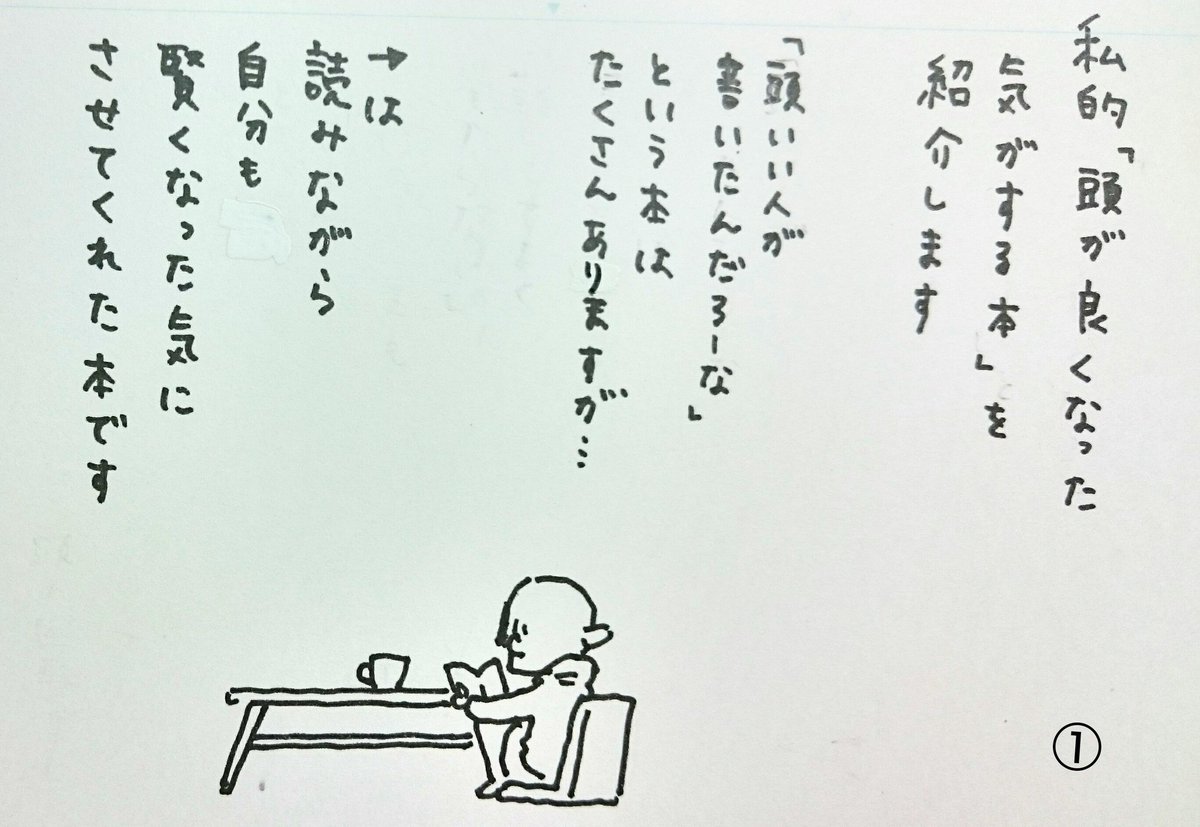 私的「頭が良くなった
気がする本」を
紹介します
「頭いい人が
書いたんだろーな」
という本は
たくさんありますが…
→は
読みながら
自分も
賢くなった気に
させてくれた本です
①